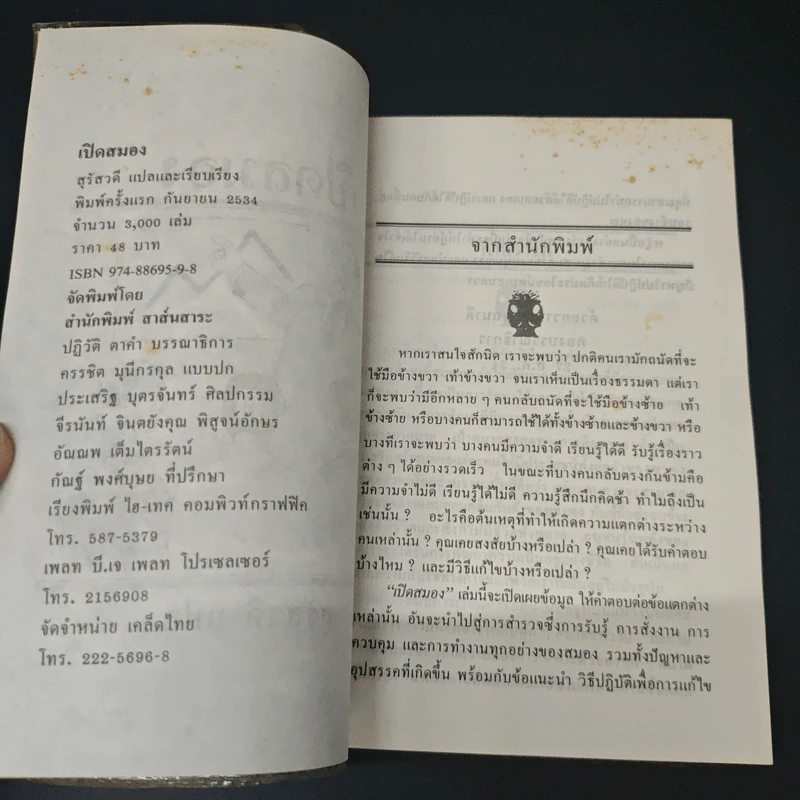 เปิดสมอง
สุรัสวดี แปลและเรียบเรียง
พิมพ์ครั้งแรก กันยายน 2534
จำนวน 3,000 เล่ม
ราคา 48 บาท
ISBN 974-88695-9-8
จัดพิมพ์โดย
สำนักพิมพ์ สาส์นสาระ
ปฏิวัติ ตาคำ บรรณาธิการ
ครรชิต มุนีกรกุล แบบปก
ประเสริฐ บุตรจันทร์ ศิลปกรรม
จีรนันท์ จินตยังคุณ พิสูจน์อักษร
อัณณพ เต็มไตรรัตน์
กัณฐ์ พงศ์บุษย ที่ปรึกษา
เรียงพิมพ์ ไฮ-เทค คอมพิวท์กราฟฟิค
โทร. 587-5379
เพลท บี.เจ เพลท โปรเซสเซอร์
โทร. 2156908
จัดจำหน่าย เคล็ดไทย
โทร. 222-5696-8
จากสำนักพิมพ์
หากเราสนใจสักนิด เราจะพบว่า ปกติคนเรามักถนัดที่จะ
ใช้มือข้างขวา เท้าข้างขวา จนเราเห็นเป็นเรื่องธรรมดา แต่เรา
ก็จะพบว่ามีอีกหลาย ๆ คนกลับถนัดที่จะใช้มือข้างซ้าย เท้า
ข้างซ้าย หรือบางคนก็สามารถใช้ได้ทั้งข้างซ้ายและข้างขวา หรือ
บางทีเราจะพบว่า บางคนมีความจำดี เรียนรู้ได้ดี รับรู้เรื่องราว
ต่าง ๆ ได้อย่างรวดเร็ว ในขณะที่บางคนกลับตรงกันข้ามคือ
มีความจำไม่ดี เรียนรู้ได้ไม่ดี ความรู้สึกนึกคิดช้า ทำไมถึงเป็น
เช่นนั้น ? อะไรคือต้นเหตุที่ทำให้เกิดความแตกต่างระหว่าง
คนเหล่านั้น ? คุณเคยสงสัยบ้างหรือเปล่า ? คุณเคยได้รับคำตอบ
บ้างไหม ? และมีวิธีแก้ไขบ้างหรือเปล่า ?
“เปิดสมอง” เล่มนี้จะเปิดเผยข้อมูล ให้คำตอบต่อข้อแตกต่าง
เหล่านั้น อันจะนำไปสู่การสำรวจซึ่งการรับรู้ การสั่งงาน การ
ควบคุม และการทำงานทุกอย่างของสมอง รวมทั้งปัญหาและ
อุปสรรคที่เกิดขึ้น พร้อมกับข้อแนะนำ วิธีปฏิบัติเพื่อการแก้ไข